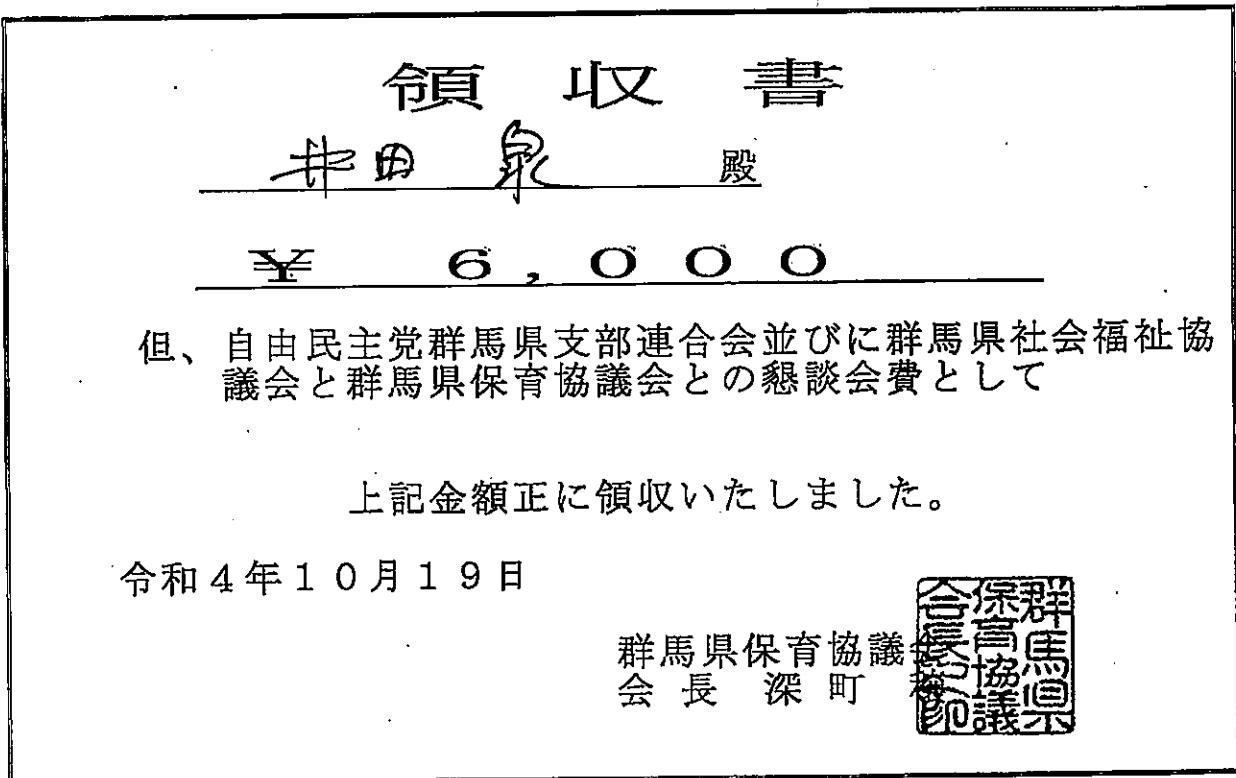 領収書
井田 泉 殿
¥ 6,000
但、自由民主党群馬県支部連合会並びに群馬県社会福祉協
議会と群馬県保育協議会との懇談会費として
上記金額正に領収いたしました。
令和4年10月19日
群馬県保育協議会
会長 深町
群馬県
保育協議
会長之印